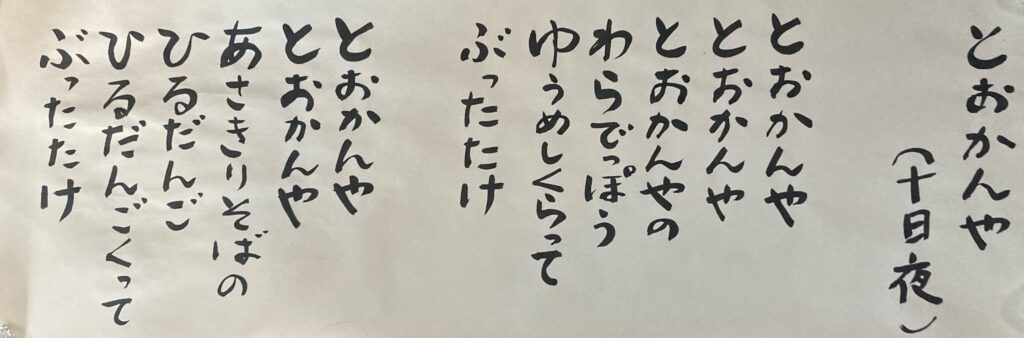 とおかんや
(十日夜)
とおかんや
とおかんや
とおかんやの
わらでっぽう
ゆうめしくらって
ぶったたけ
とおかんや
とおかんや
あさきりそばの
ひるだんご
ひるだんごくって
ぶったたけ